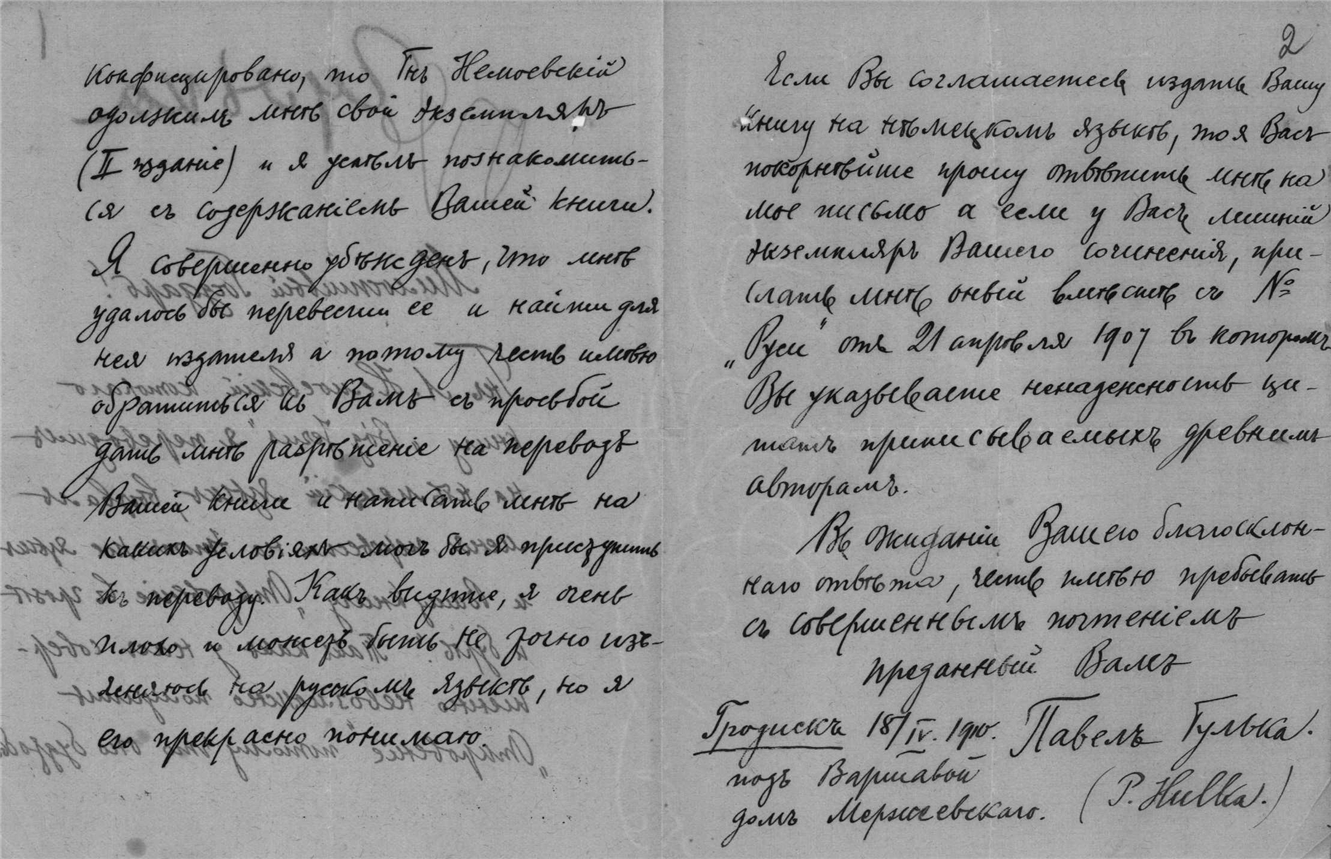 1
конфисцировано, то Гнъ Немоевскій
одолжилъ мнѣ свой экземпляръ
(II изданіе) и я успѣлъ познакомить-
ся съ содержаніемъ Вашей книги.
Я совершенно убѣжденъ, что мнѣ
удалось бы перевести ее и найти для
нея издателя а потому честь имѣю
обратиться къ Вамъ съ просьбой
дать мнѣ разрѣшеніе на переводъ
Вашей книги и написать мнѣ на
какихъ условіяхъ могъ бы я приступить
къ переводу. Какъ видите, я очень
плохо и можетъ быть не точно изъ-
ясняюсь на русскомъ языкѣ, но я
его прекрасно понимаю.
2
Если Вы соглашаетесь издать Вашу
книгу на нѣмецкомъ языкѣ, то я Васъ
покорнѣйше прошу отвѣтить мнѣ на
мое письмо а если у Васъ лишній
экземпляръ Вашего сочиненія, при-
слать мнѣ оный вмѣстѣ съ №
„Руси" отъ 21 апрѣля 1907 въ которомъ
Вы указываете ненадежность ци-
татъ приписываемыхъ древнимъ
авторамъ.
Въ ожиданіи Вашего благосклон-
наго отвѣта, честь имѣю пребывать
съ совершеннымъ почтеніемъ
преданный Вамъ
Гродискъ 18/IV. 1910. Павелъ Гулька.
подъ Варшавой
домъ Мержеевскаго. (P. Hulka.)